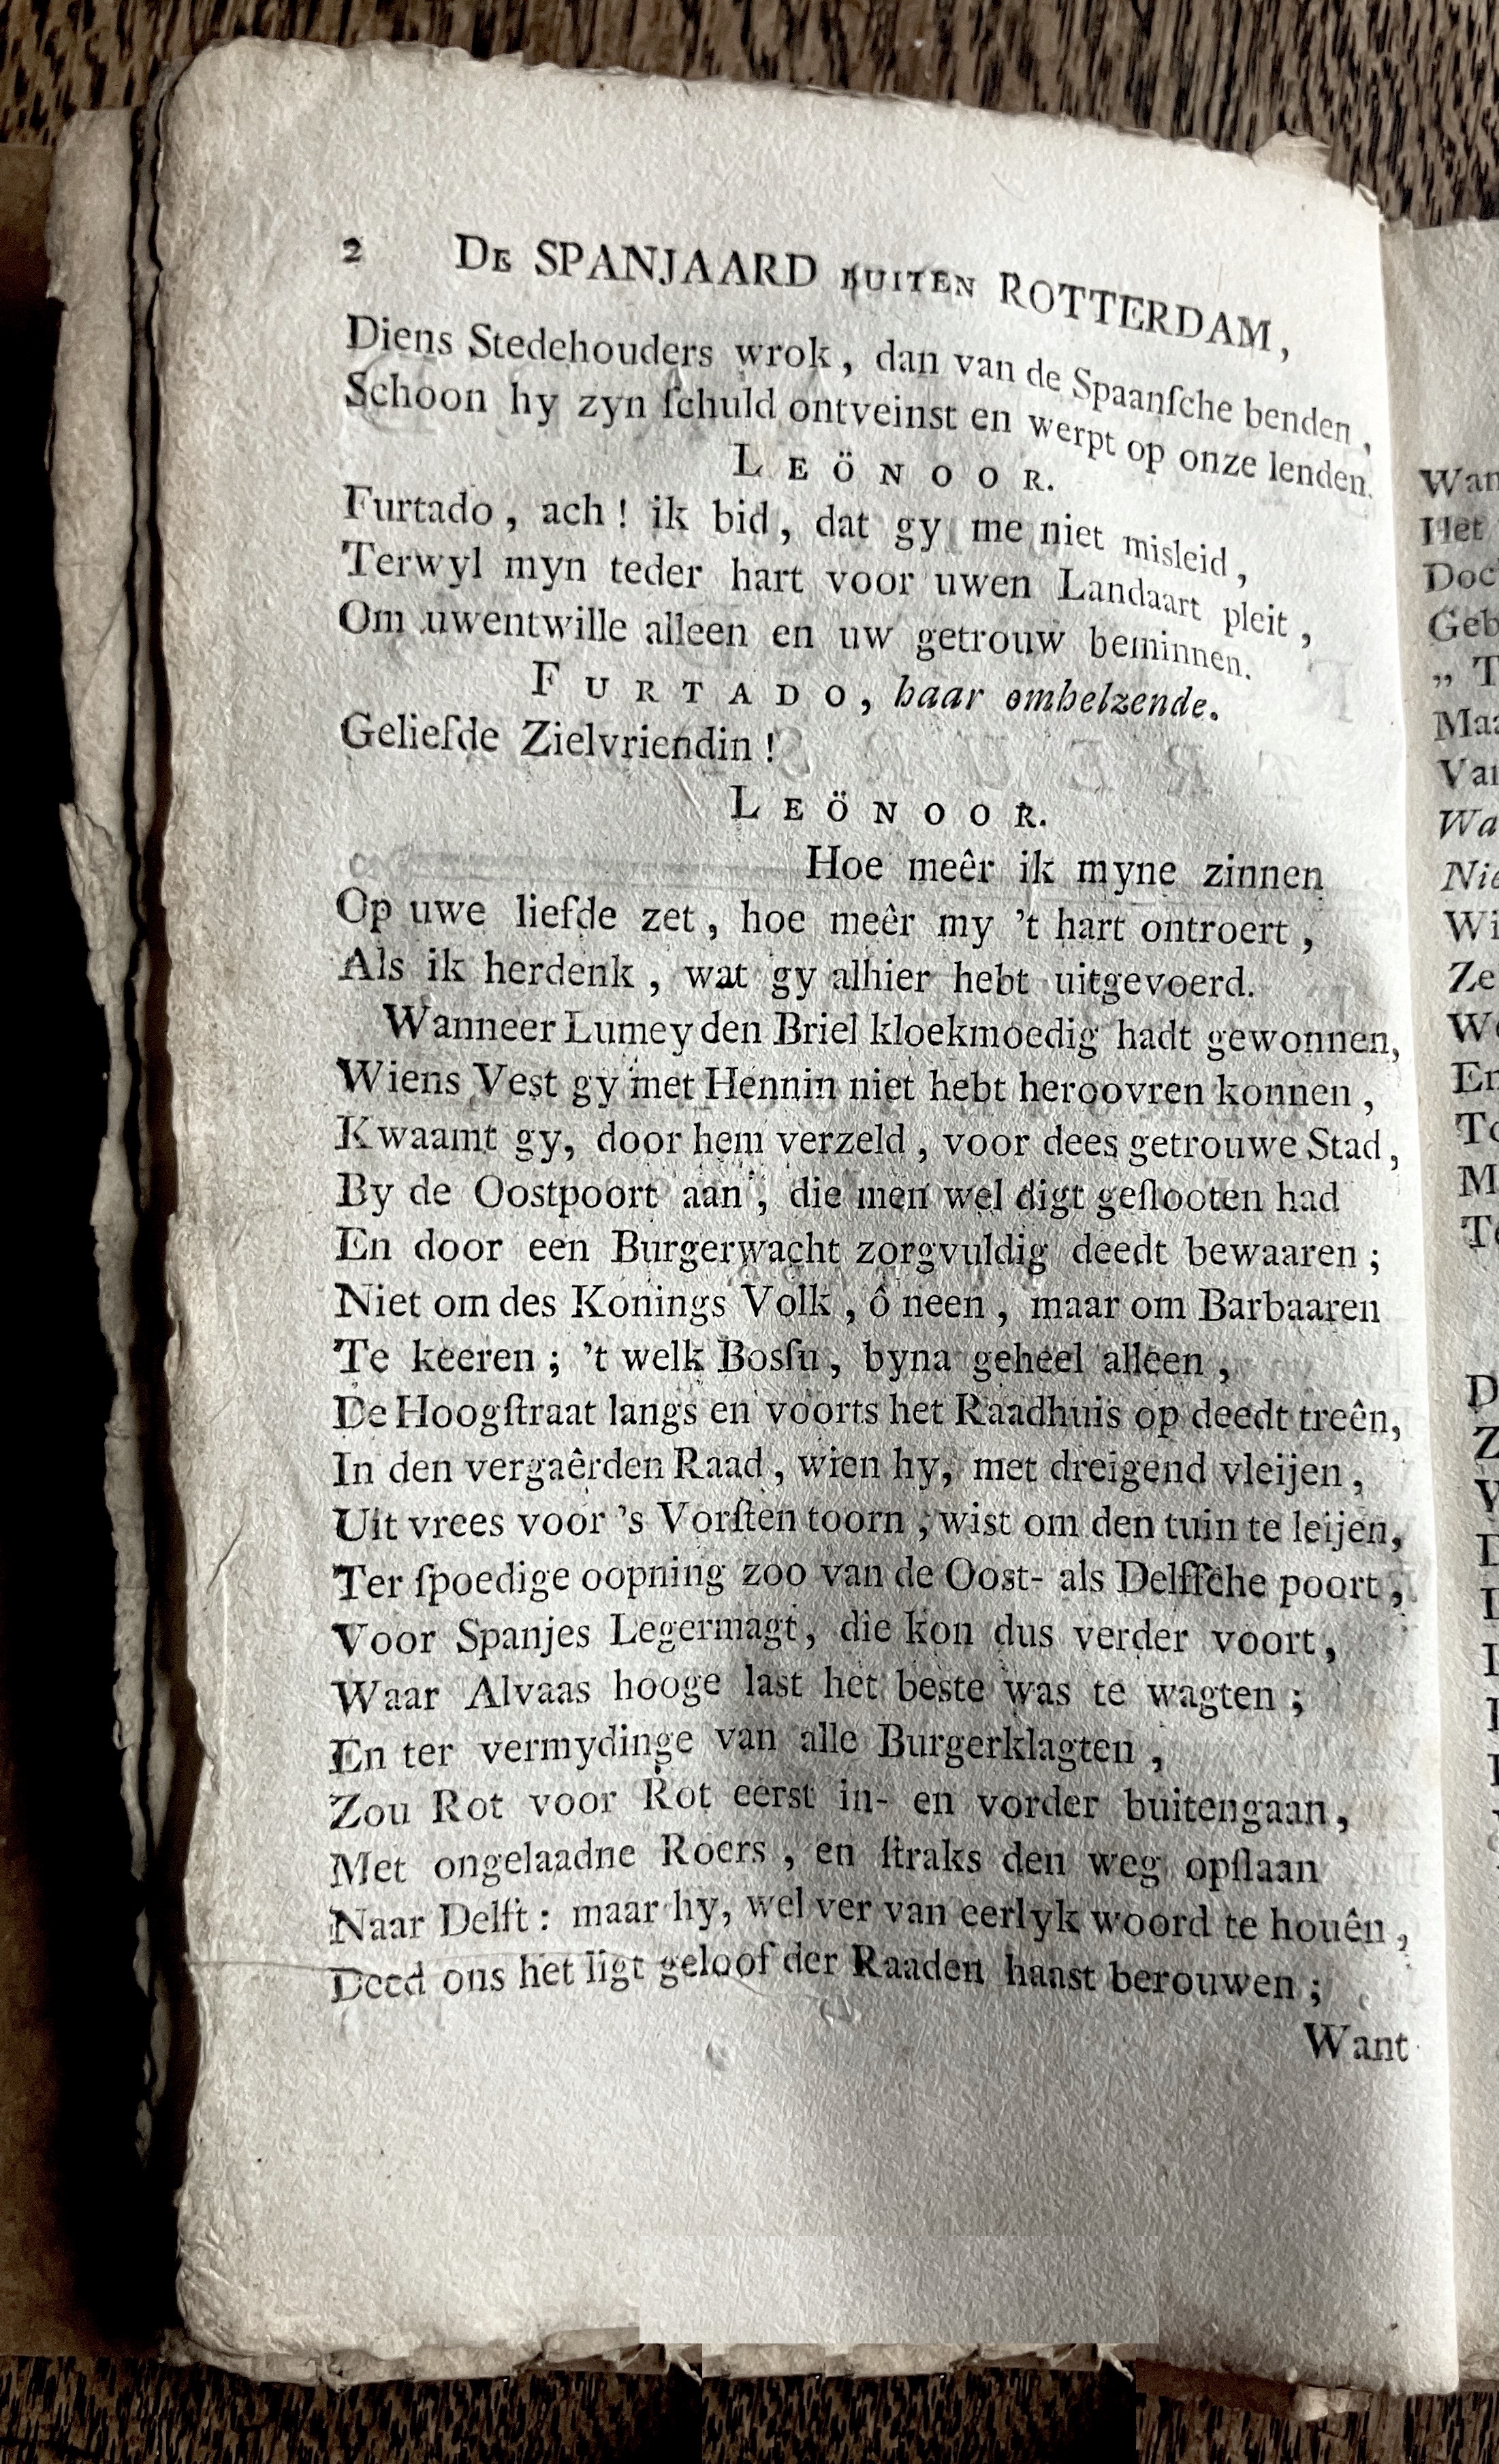 2 De SPANJAARD BUITEN ROTTERDAM,
Diens Stedehouders wrok, dan van de Spaanſche benden,
Schoon hy zyn ſchuld ontveinst en werpt op onze lenden.
LEÖNOOR.
Furtado, ach! ik bid, dat gy me niet misleid,
Terwyl myn teder hart voor uwen Landaart pleit,
Om uwentwille alleen en uw getrouw beminnen.
FURTADO, haar omhelzende.
Geliefde Zielvriendin!
LEÖNOOR.
Hoe meêr ik myne zinnen
Op uwe liefde zet, hoe meêr my 't hart ontroert,
Als ik herdenk, wat gy alhier hebt uitgevoerd.
Wanneer Lumey den Briel kloekmoedig hadt gewonnen,
Wiens Vest gy met Hennin niet hebt heroovren konnen,
Kwaamt gy, door hem verzeld, voor dees getrouwe Stad,
By de Oostpoort aan, die men wel digt geſlooten had
En door een Burgerwacht zorgvuldig deedt bewaaren;
Niet om des Konings Volk, ô neen, maar om Barbaaren
Te keeren; 't welk Bosſu, byna geheel alleen,
De Hoogſtraat langs en voorts het Raadhuis op deedt treên,
In den vergaêrden Raad, wien hy, met dreigend vleijen,
Uit vrees voor 's Vorſten toorn, wist om den tuin te leijen,
Ter ſpoedige oopning zoo van de Oost- als Delfſche poort,
Voor Spanjes Legermagt, die kon dus verder voort,
Waar Alvaas hooge last het beste was te wagten;
En ter vermydinge van alle Burgerklagten,
Zou Rot voor Rot eerst in- en vorder buitengaan,
Met ongelaadne Roers, en ſtraks den weg opſlaan
Naar Delft: maar hy, wel ver van eerlyk woord te houên,
Deed ons het ligt geloof der Raaden haast berouwen;
Want
Wan
Het
Doc
Geb
„ T
Maa
Van
Wa
Nie
Wi
Ze
We
En
To
M
To
D
Z